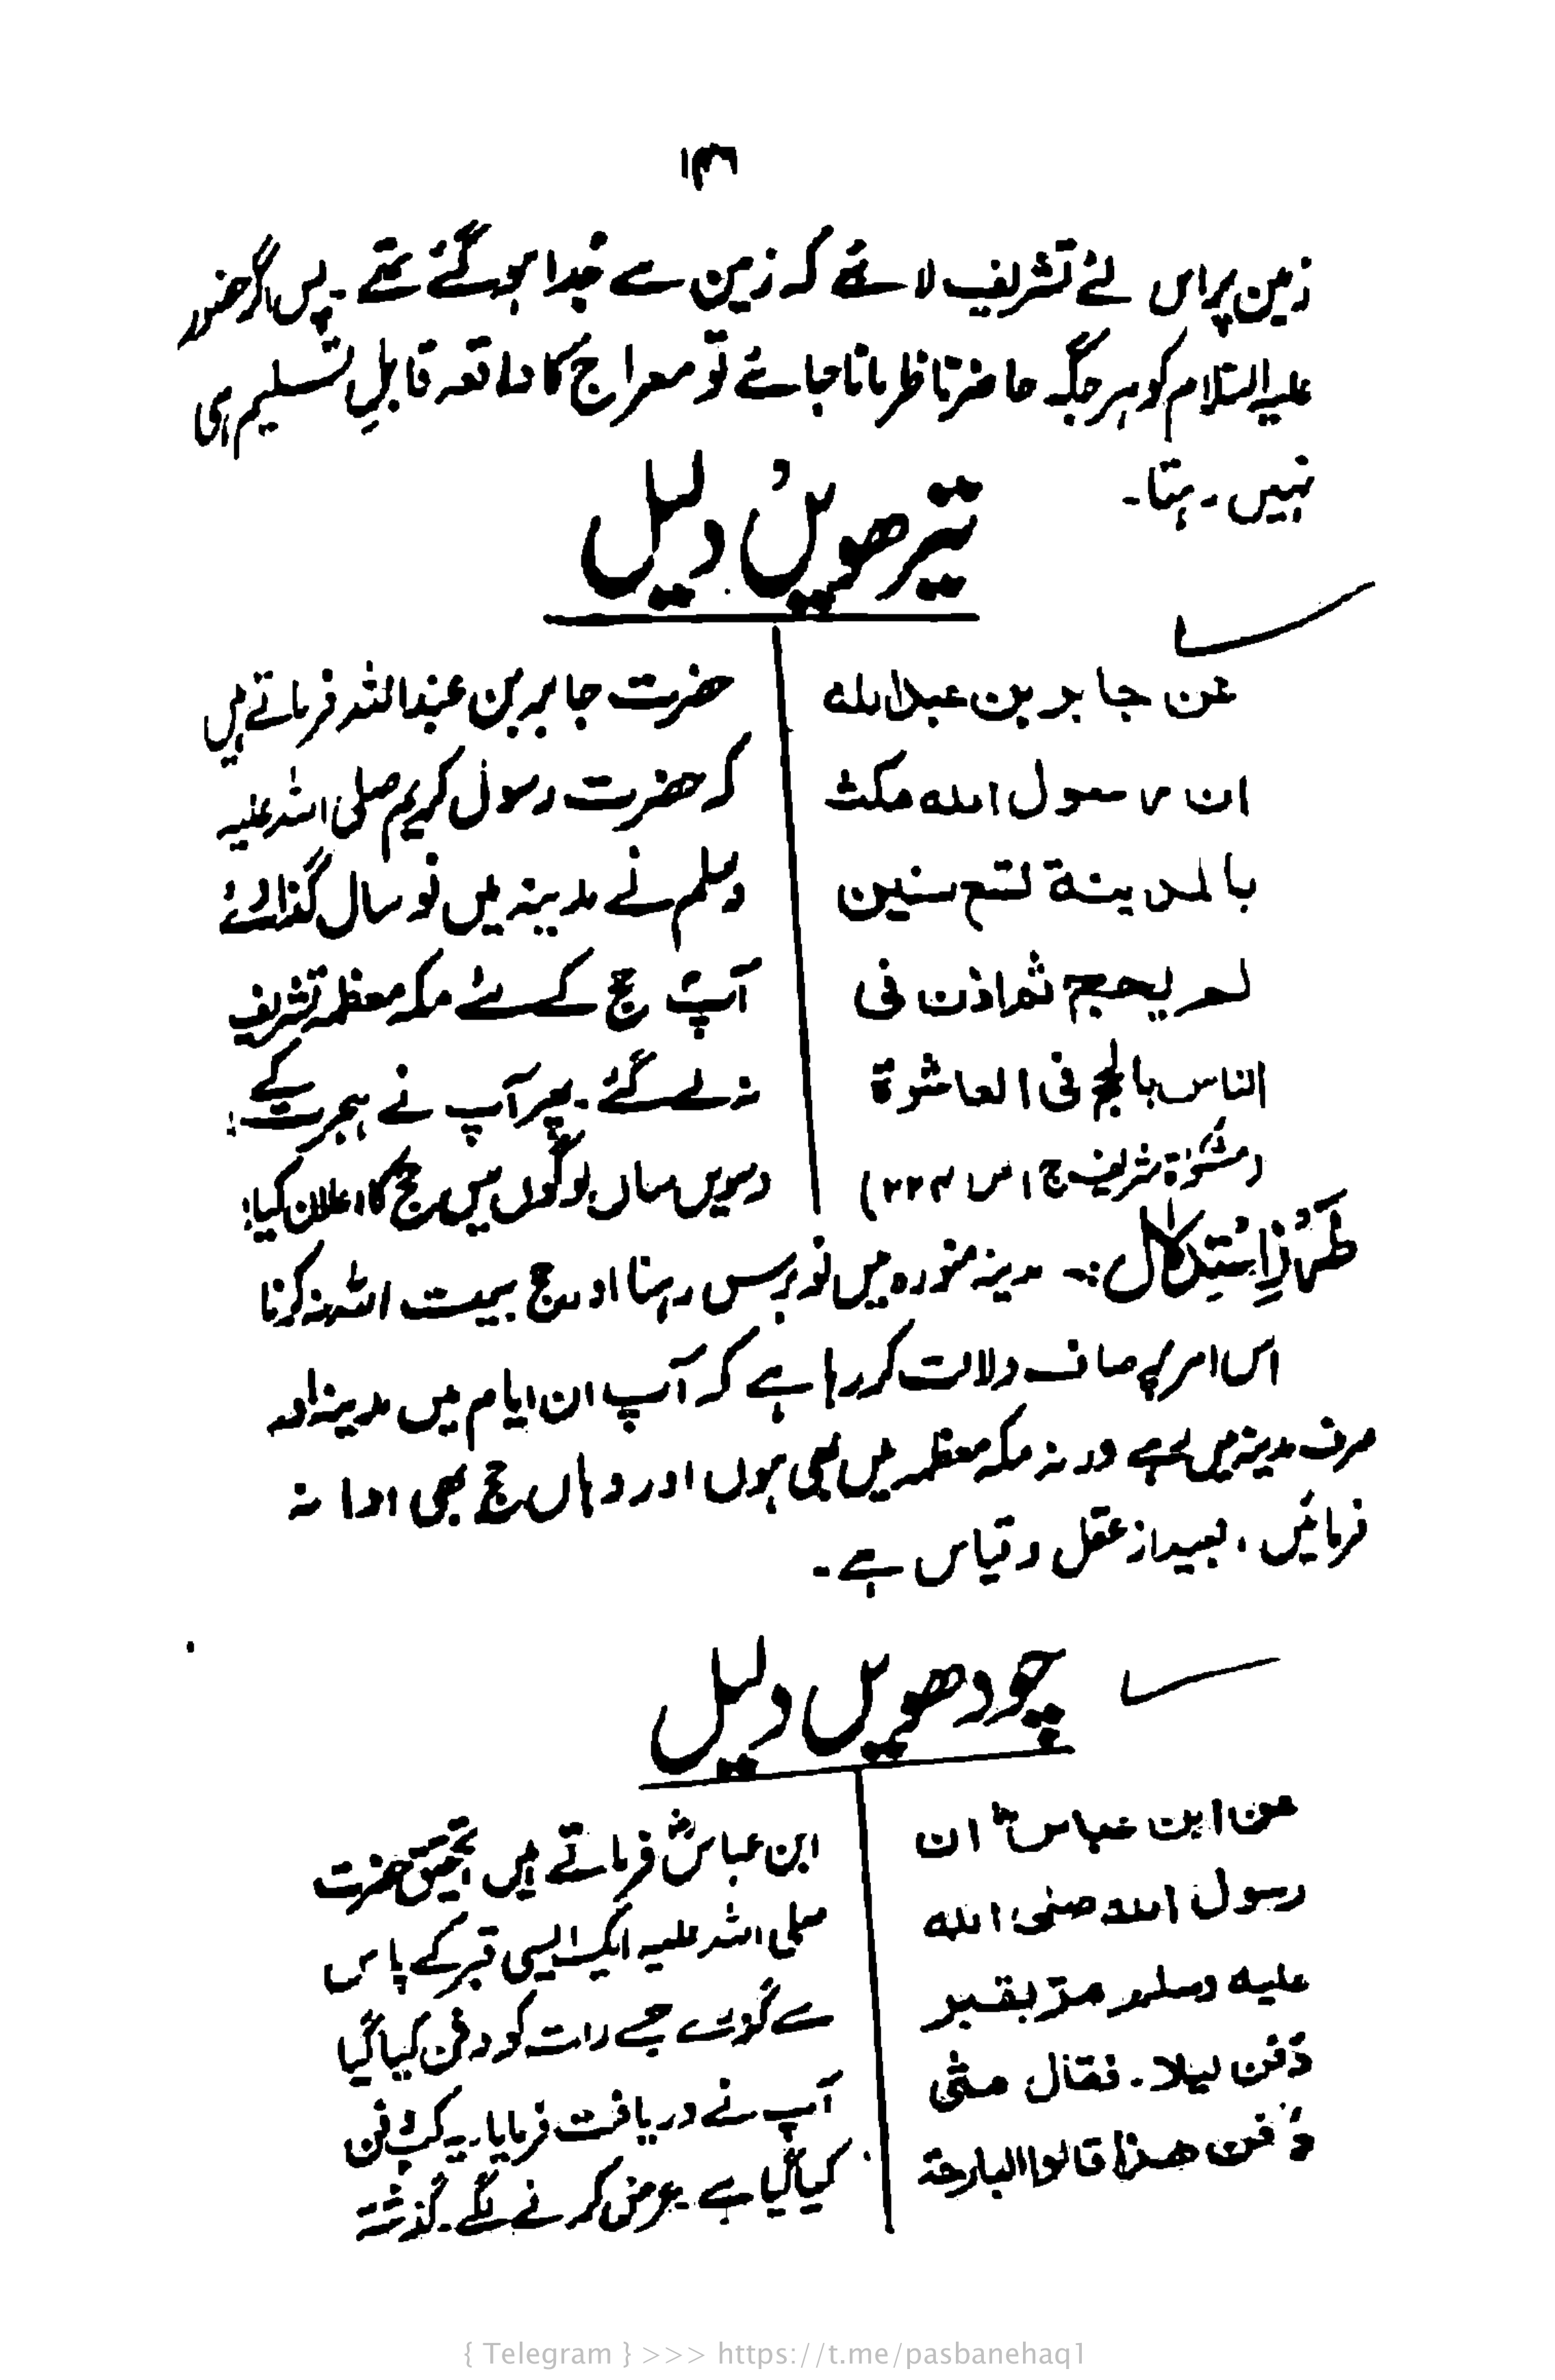 ۱۳
زمین پر اس لئے تشریف لائے کہ زمین سے جدا ہو گئے تھے۔ پس اگر حضور
علیہ السلام کو ہر جگہ حاضر ناظر مانا جائے تو معراج کا واقعہ قابلِ تسلیم ہی
نہیں رہتا۔
تیرھویں دلیل
عن جابر بن عبد الله
ان رسول الله مکث
بالمدینة تسع سنین
لم یحج ثم اذن فی
الناس بالحج فی العاشرة
(مشکوٰة شریف ج ۱ ص ۲۲۴)
حضرت جابر بن عبداللہ فرماتے ہیں
کہ حضرت رسول کریم صلی اللہ علیہ
وسلم نے مدینہ میں نو سال گذارے
آپؐ حج کے لئے مکہ معظمہ تشریف
نہ لے گئے۔ پھر آپ نے ہجرت کے
دسویں سال لوگوں میں حج کا اعلان کیا؛
طرز استدلال :۔ مدینہ منورہ میں نو برس رہنا اور حج بیت اللہ نہ کرنا
اس امر پر صاف دلالت کر رہا ہے کہ آپ ان ایام میں مدینہ اور
صرف مدینہ میں رہے ورنہ مکہ معظمہ میں بھی ہوں اور وہاں حج بھی ادا نہ
فرمائیں، بعید از عقل و قیاس ہے۔
چودھویں دلیل
عن ابن عباسؓ ان
رسول الله صلی الله
علیه وسلم مرّ بقبر
دُفن لیلا۔ فقال متٰی
دُفن هذا قالوا البارحة
ابن عباسؓ فرماتے ہیں تحقیق حضرت
صلی اللہ علیہ ایک ایسی قبر کے پاس
سے گزرے جسے رات کو دفن کیا گیا
آپ نے دریافت فرمایا۔ یہ کب دفن
کیا گیا ہے۔ عرض کرنے لگے۔ گذشتہ
{ Telegram } >>> https://t.me/pasbanehaq1